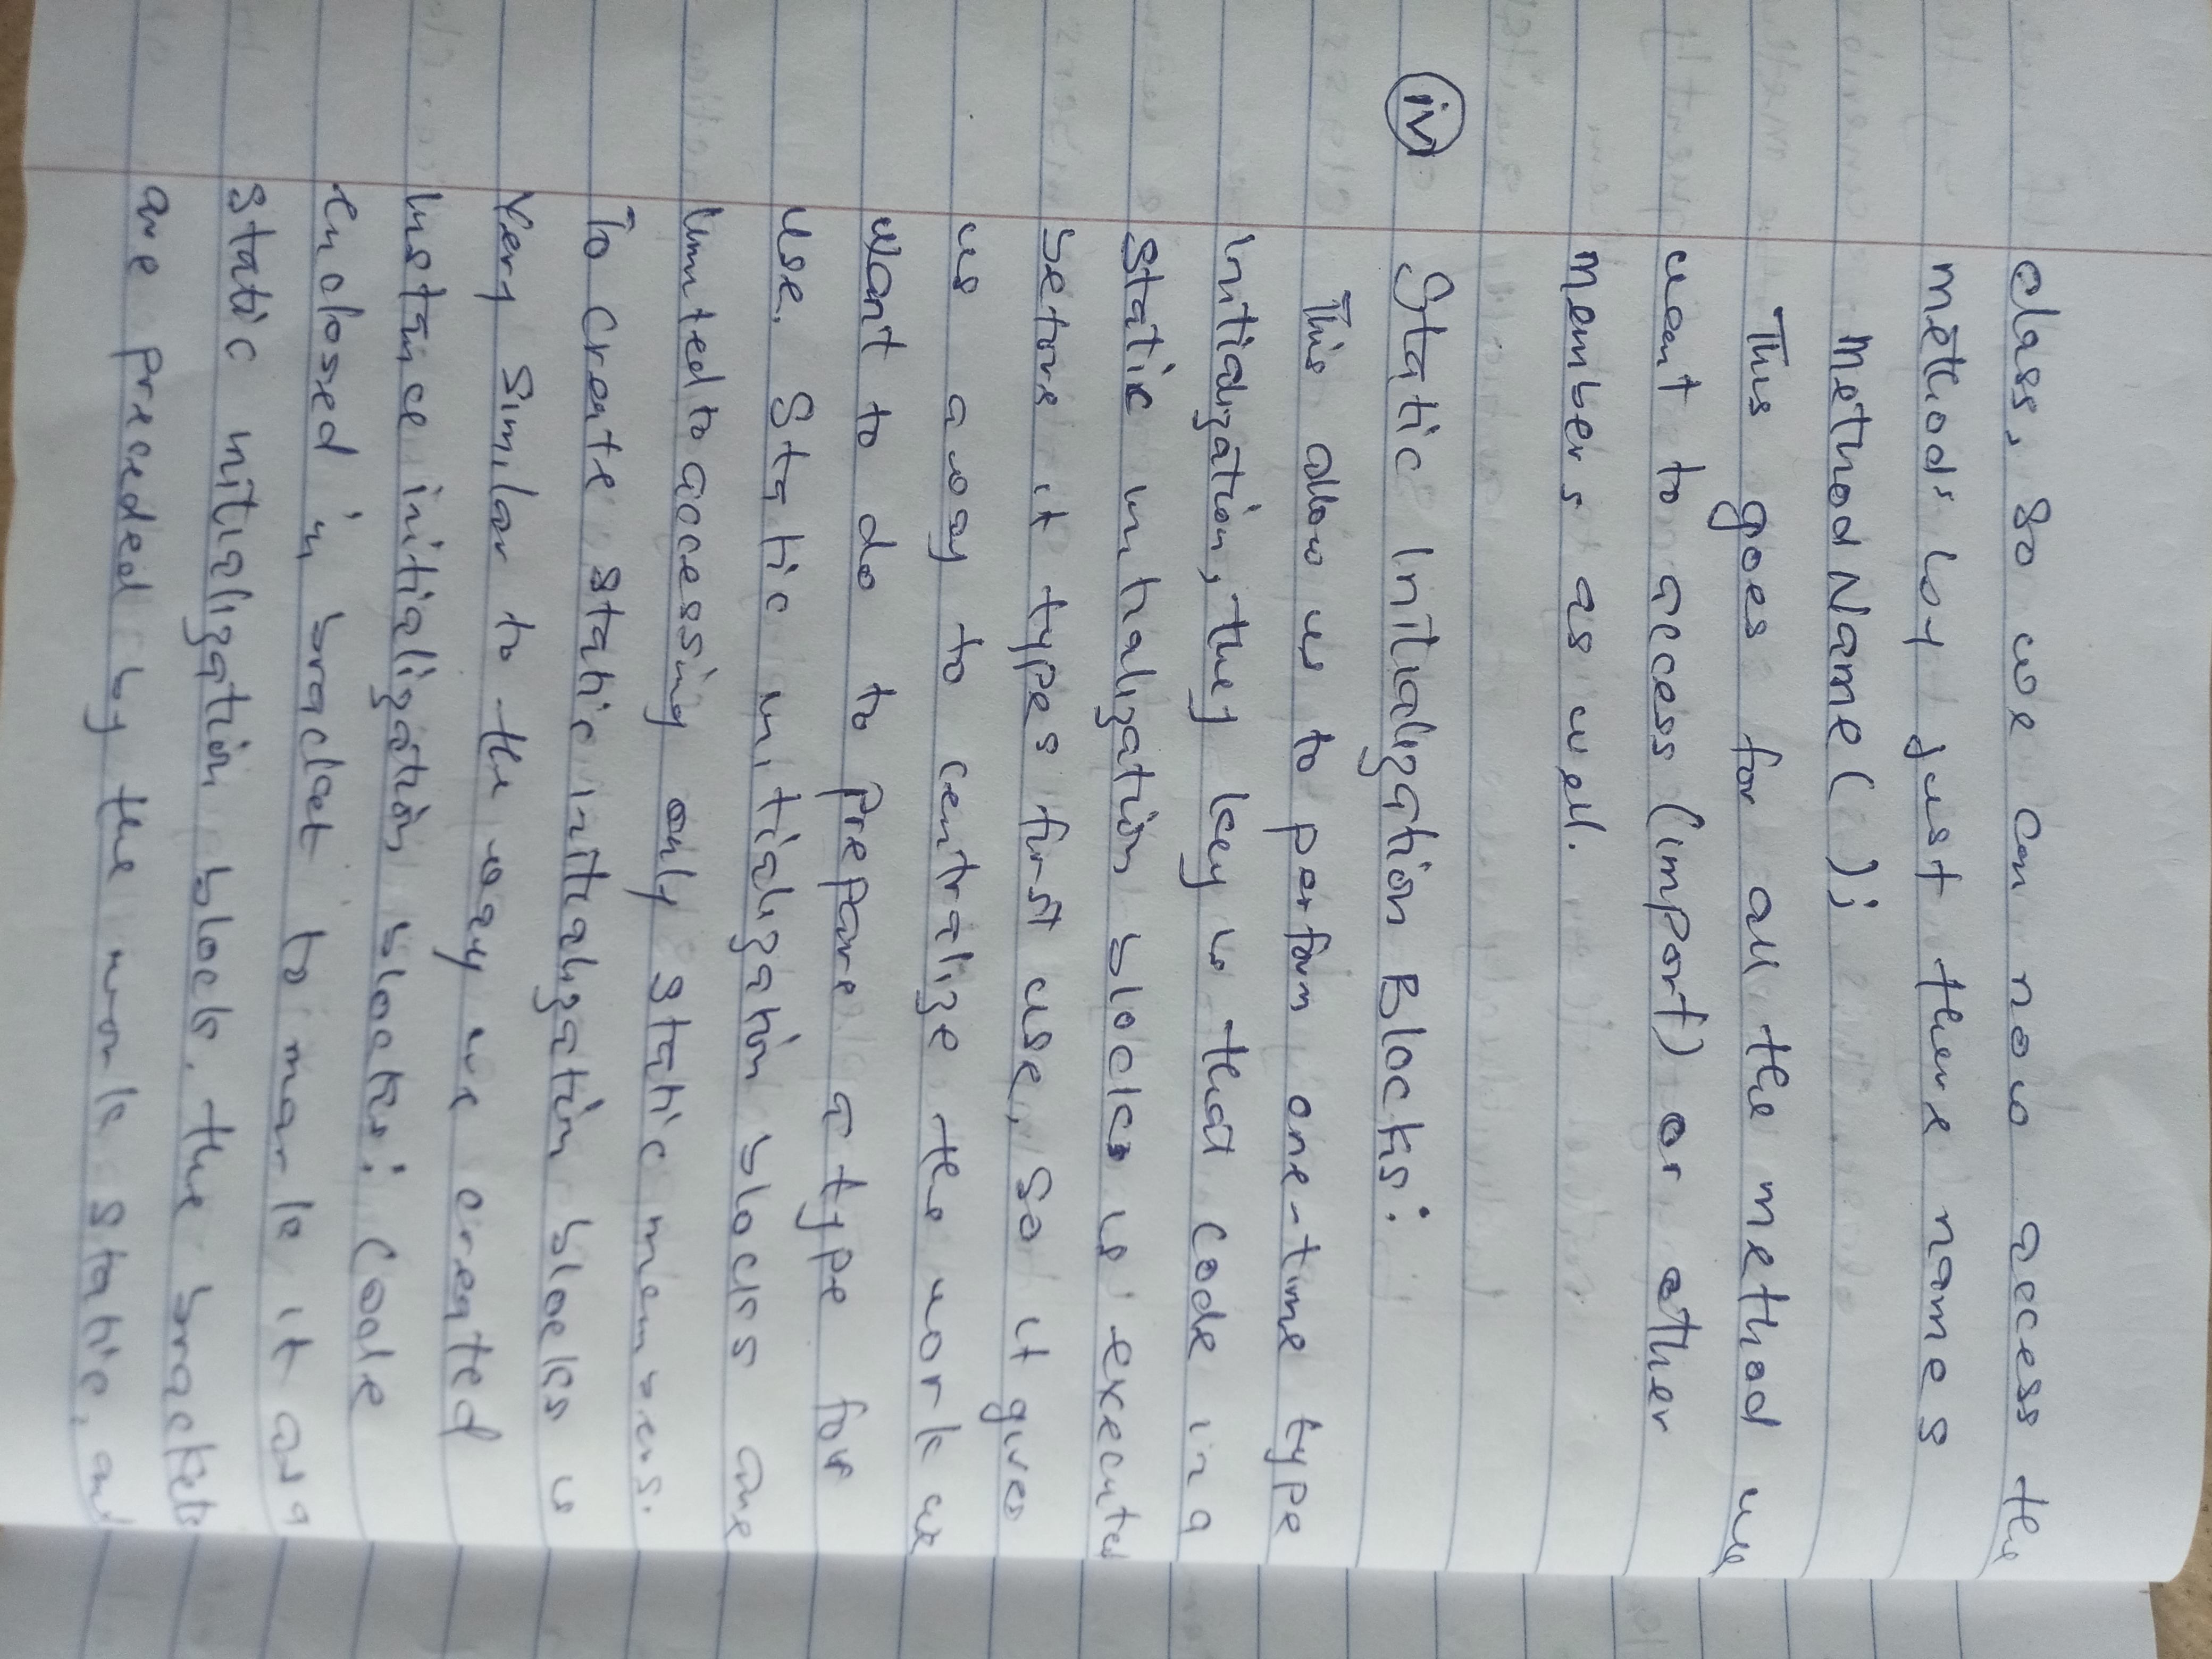 class, so we can now access the
methods by just there names
MethodName( );
This goes for all the method we
want to access (import) or other
members as well.
iv Static Initialization Blocks:
This allow us to perform one-time type
initialization, they key is that code in a
static initialization blocks is executed
before it types first use, so it gives
us a way to centralize the work we
want to do to prepare a type for
use. Static initialization blocks are
limited to accessing only static members.
To create static initialization blocks is
very similar to the way we created
instance initialization blocks: Code
enclosed in bracket to mark it as a
static initialization block, the brackets
are preceded by the work static, and